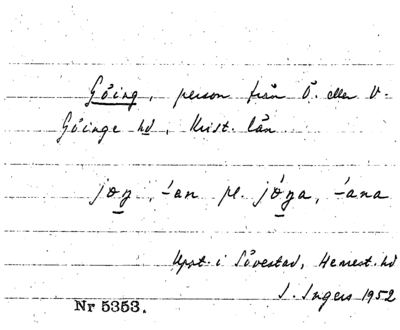 Göing, person från Ö. eller V.
Göinge hd, Krist. län
jøŋ, -́an pl. jǿŋa, -́ana
Uppt. i Sövestad, Herrest. hd
I. Ingers 1952
Nr 5353.